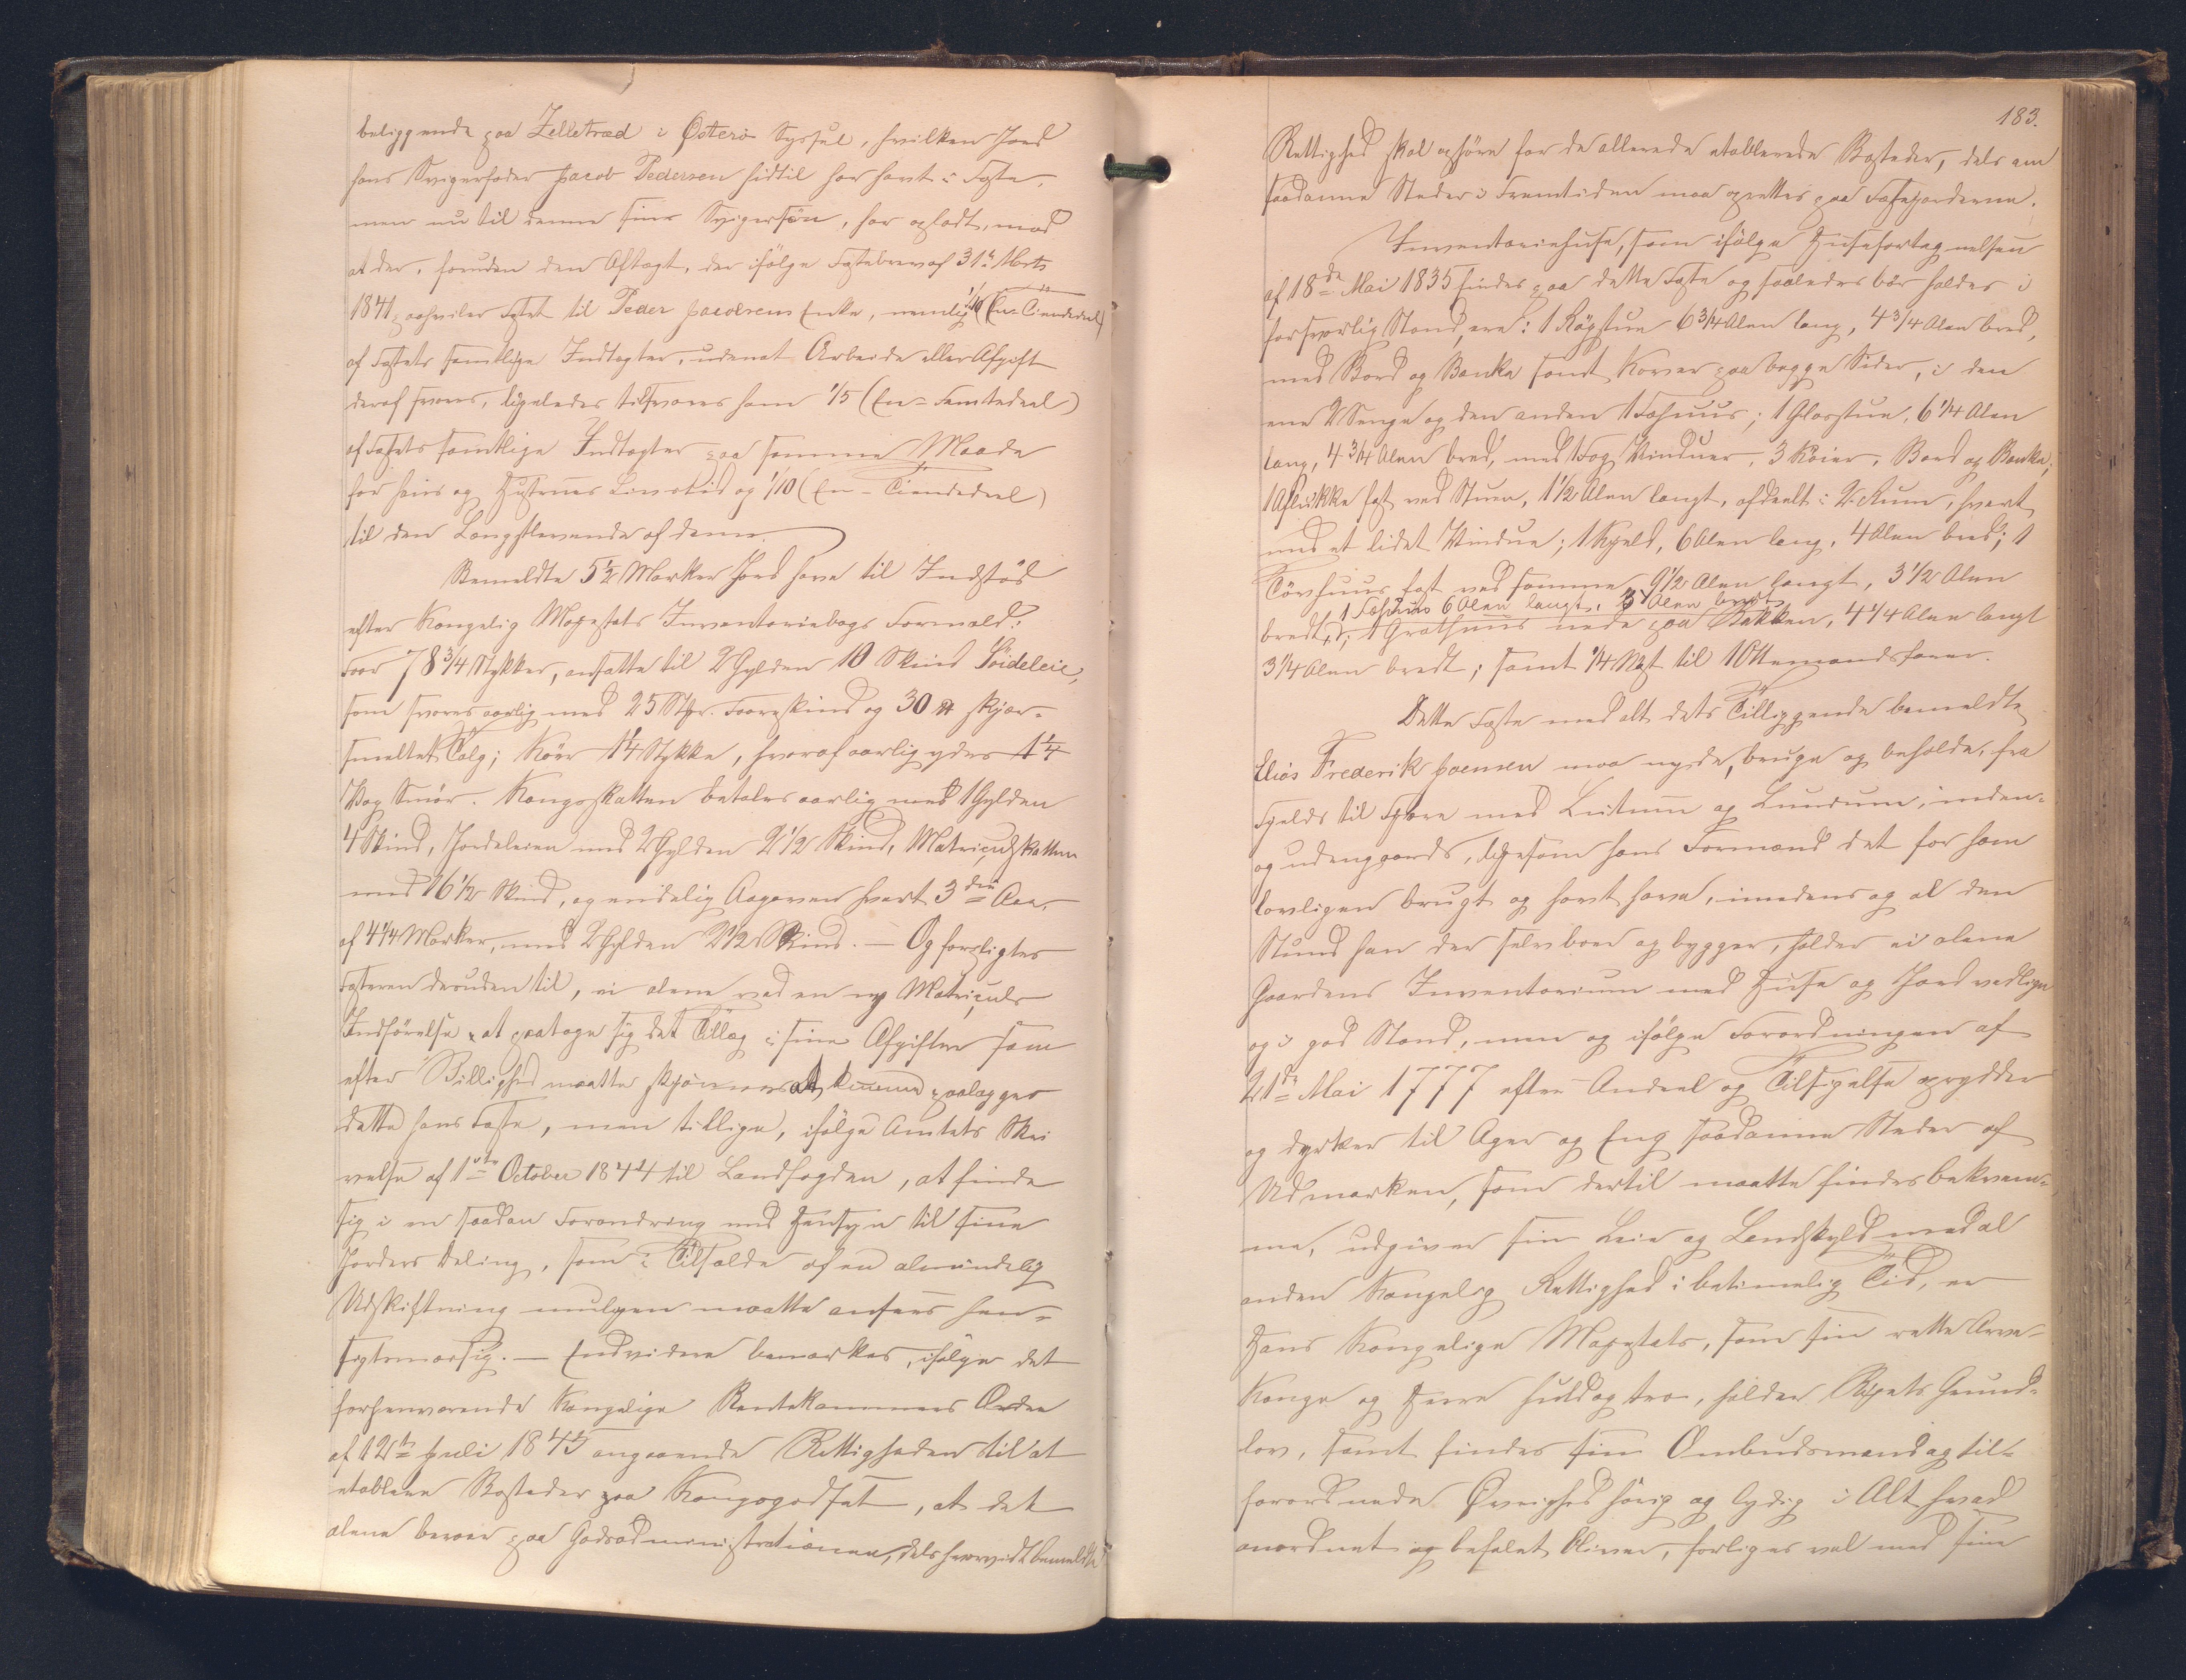 beliggende paa Zelletræd i Østerø Syssel, hvilken Jord
hans Svigerfader Jacob Pedersen hidtil har havt i Fæste,
men nu til denne sin Svigersøn, har opladt, mod
at der, foruden den Aftægt, der ifølge Fæstebrev af 31te Marts
1841 paahviler Fæstet til Peder Jacobsens Enke, nemlig 1/10 (En-Tiendedeel)
af Fæstets samtlige Indtægter, uden at Arbeide eller Afgift
deraf svares, ligeledes tilsvares ham 1/5 (En-Femtedeel)
af Fæstets samtlige Indtægter paa samme Maade
for hans og Hustrues Livstid og 1/10 (En-Tiendedeel)
til den Længstlevende af dem.
Bemeldte 5½ Marker Jord have til Indstød
efter Kongelig Majestæts Inventariebogs Formeld:
Faar 78¾ Stykker, ansatte til 2 Gylden 10 Skind Søideleie,
som svares aarlig med 25 Stkr. Faareskind og 30 ℔ skjær-
smeltet Talg; Køer 1¼ Stykke, hvoraf aarlig ydes 1¼
Vog Smør. Kongsskatten betales aarlig med 1 Gylden
4 Skind, Jordeleien med 2 Gylden 2½ Skind, Matriculskatten
med 16½ Skind, og endelig Aagaven hvert 3die Aar,
af 4¼ Marker, med 2 Gylden 2½ Skind. — Og forpligtes
Fæsteren desuden til, ei alene ved en ny Matriculs
Indførelse at paatage sig det Tillæg i sine Afgifter som
efter Billighed maatte skjønnes at kunne paalægges
dette hans Fæste, men tillige, ifølge Amtets Skri
velse af 1ste October 1844 til Landfogden, at finde
sig i en saadan Forandring med Hensyn til sine
Jorders Deling, som i Tilfælde af en almindelig
Udskiftning muligen maatte ansees hen-
sigtsmæssig. — Endvidere bemærkes, ifølge det
forhenværende Kongelige Rentekammers Ordre
af 12te Juli 1845 angaaende Rettigheden til at
etablere Bosteder paa Kongsgodset, at det
alene beroer paa Godsadministrationen, dels hvorvidt bemeldte
183.
Rettighed skal ophøre for de allerede etablerede Bosteder, dels om
saadanne Steder i Fremtiden maa oprettes paa Fæstejorderne.
Inventariehuse, som ifølge Husefortegnelsen
af 18de Mai 1835 findes paa dette Fæste og saaledes bør holdes i
forsvarlig Stand, ere: 1 Røgstue 6¾ Alen lang, 4¾ Alen bred,
med Bord og Bænke samt Kover paa begge Sider, i den
ene 2 Senge og den anden 1 Fæhuus; 1 Glarstue, 6¼ Alen
lang, 4¾ Alen bred, med 1 Fag Vinduer, 3 Køier, Bord og Bænke;
1 Aflukke fast ved Stuen, 1½ Alen langt, afdeelt i 2 Rum, hvert
med et lidet Vindue; 1 Hjeld, 6 Alen lang, 4 Alen bred; 1
Tørvhuus fast ved samme 9½ Alen langt, 3½ Alen
1 Fæhuus 6 Alen langt, 3 Alen bredt
bredt; 1 Grothuus nede paa Bakken, 4¼ Alen langt
3¼ Alen bredt; samt ¼ Nøst til 1 Ottemandsfarer.
Dette Fæste med alt dets Tilliggende bemeldte
Elias Frederik Joensen maa nyde, bruge og beholde, fra
Fjelds til Fjære med Luttum og Lunnum, inden-
og udengaards, ligesom hans Formænd det for ham
lovligen brugt og havt have, imedens og al den
Stund han der selv boer og bygger, holder ei alene
Gaardens Inventarium med Huse og Jord vedlige
og i god Stand, men og ifølge Forordningen af
21de Mai 1777 efter Andeel og Tilsigelse oprydder
og dyrker til Ager og Eng saadanne Steder af
Udmarken, som dertil maatte findes bekvem-
me, udgiver sin Leie og Landskyld med al
anden Kongelig Rettighed i betimelig Tid, er
Hans Kongelige Majestæts, som sin rette Arve-
Konge og Herre huld og tro, holder Rigets Grund-
lov, samt findes sin Ombudsmand og til-
forordnede Øvrighed hørig og lydig i Alt hvad
anordnet og befalet bliver, forliges vel med sine